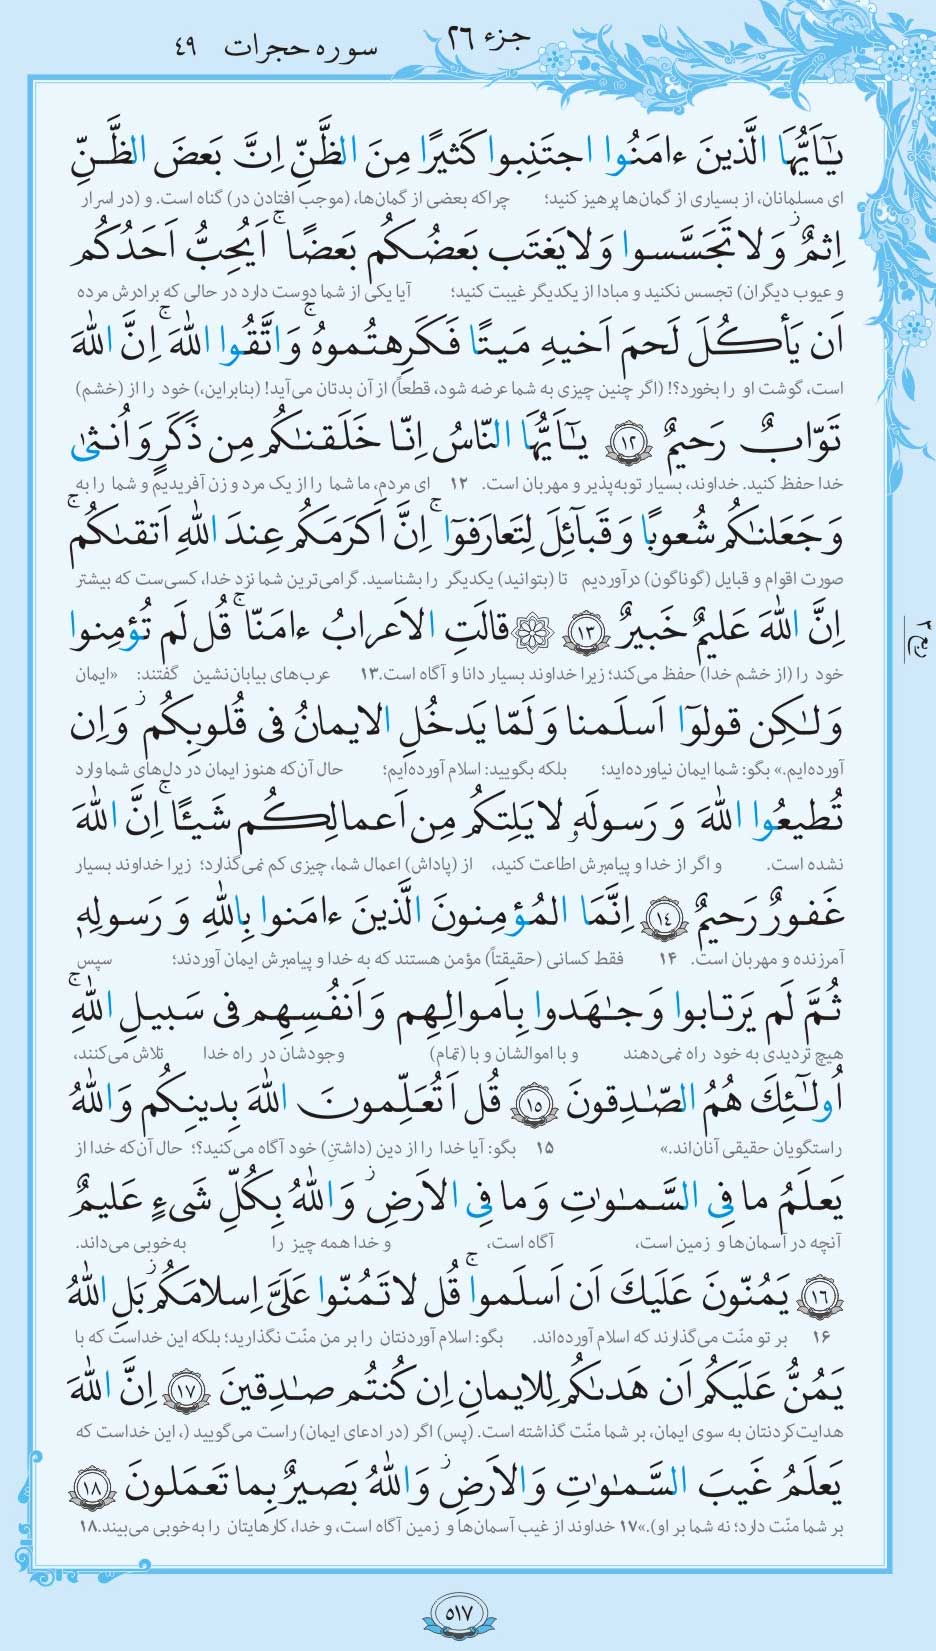 جزء ۲۶
سوره حجرات ۴۹
یٰۤاَیُّهَا الَّذینَ ءامَنُوا اجتَنِبوا کَثیرًا مِنَ الظَّنِّ اِنَّ بَعضَ الظَّنِّ
ای مسلمانان، از بسیاری از گمان‌ها پرهیز کنید؛ چراکه بعضی از گمان‌ها، (موجب افتادن در) گناه است. و (در اسرار
اِثمٌ ۖ وَلا تَجَسَّسوا وَلا یَغتَب بَعضُکُم بَعضًا ۚ اَیُحِبُّ اَحَدُکُم
و عیوب دیگران) تجسس نکنید و مبادا از یکدیگر غیبت کنید؛ آیا یکی از شما دوست دارد در حالی که برادرش مرده
اَن یَأکُلَ لَحمَ اَخیهِ مَیتًا فَکَرِهتُموهُ ۚ وَاتَّقُوا اللّٰهَ ۚ اِنَّ اللّٰهَ
است، گوشت او را بخورد؟! (اگر چنین چیزی به شما عرضه شود، قطعاً) از آن بدتان می‌آید! (بنابراین،) خود را از (خشم)
تَوّابٌ رَحیمٌ ١٢ یٰۤاَیُّهَا النّاسُ اِنّا خَلَقنٰکُم مِن ذَکَرٍ وَ اُنثیٰ
خدا حفظ کنید. خداوند، بسیار توبه‌پذیر و مهربان است. ۱۲ ای مردم، ما شما را از یک مرد و زن آفریدیم و شما را به
وَ جَعَلنٰکُم شُعوبًا وَ قَبآئِلَ لِتَعارَفوۤا ۚ اِنَّ اَکرَمَکُم عِندَ اللّٰهِ اَتقىٰکُم ۚ
صورت اقوام و قبایل (گوناگون) درآوردیم تا (بتوانید) یکدیگر را بشناسید. گرامی‌ترین شما نزد خدا، کسی‌ست که بیشتر
اِنَّ اللّٰهَ عَلیمٌ خَبیرٌ ١٣ ۞ قالَتِ الاَعرابُ ءامَنّا ۚ قُل لَم تُؤمِنوا
خود را (از خشم خدا) حفظ می‌کند؛ زیرا خداوند بسیار دانا و آگاه است.۱۳ عرب‌های بیابان‌نشین گفتند: «ایمان
ربع ۳
وَلٰکِن قولوۤا اَسلَمنا وَ لَمّا یَدخُلِ الایمانُ فی قُلوبِکُم ۖ وَ اِن
آورده‌ایم.» بگو: شما ایمان نیاورده‌اید؛ بلکه بگویید: اسلام آورده‌ایم؛ حال آن‌که هنوز ایمان در دل‌های شما وارد
تُطیعُوا اللّٰهَ وَ رَسولَهٗ لا یَلِتکُم مِن اَعمالِکُم شَیئًا ۚ اِنَّ اللّٰهَ
نشده است. و اگر از خدا و پیامبرش اطاعت کنید، از (پاداش) اعمال شما، چیزی کم نمی‌گذارد؛ زیرا خداوند بسیار
غَفورٌ رَحیمٌ ١٤ اِنَّمَا المُؤمِنونَ الَّذینَ ءامَنوا بِاللّٰهِ وَ رَسولِهٖ
آمرزنده و مهربان است. ۱۴ فقط کسانی (حقیقتاً) مؤمن هستند که به خدا و پیامبرش ایمان آوردند؛ سپس
ثُمَّ لَم یَرتابوا وَ جٰهَدوا بِاَموالِهِم وَ اَنفُسِهِم فی سَبیلِ اللّٰهِ ۚ
هیچ تردیدی به خود راه نمی‌دهند و با اموالشان و با (تمام) وجودشان در راه خدا تلاش می‌کنند،
اُولٰۤئِکَ هُمُ الصّٰدِقونَ ١٥ قُل اَتُعَلِّمونَ اللّٰهَ بِدینِکُم وَ اللّٰهُ
راستگویان حقیقی آنان‌اند.» ۱۵ بگو: آیا خدا را از دین (داشتن) خود آگاه می‌کنید؟؛ حال آن‌که خدا از
یَعلَمُ ما فِی السَّمٰوٰتِ وَ ما فِی الاَرضِ ۚ وَ اللّٰهُ بِکُلِّ شَیءٍ عَلیمٌ
آنچه در آسمان‌ها و زمین است، آگاه است، و خدا همه چیز را به‌خوبی می‌داند.
١٦ یَمُنّونَ عَلَیکَ اَن اَسلَموا ۖ قُل لا تَمُنّوا عَلَیَّ اِسلامَکُم ۖ بَلِ اللّٰهُ
۱۶ بر تو منّت می‌گذارند که اسلام آورده‌اند. بگو: اسلام آوردنتان را بر من منّت نگذارید؛ بلکه این خداست که با
یَمُنُّ عَلَیکُم اَن هَدىٰکُم لِلایمانِ اِن کُنتُم صٰدِقینَ ١٧ اِنَّ اللّٰهَ
هدایت‌کردنتان به سوی ایمان، بر شما منّت گذاشته است. (پس) اگر (در ادعای ایمان) راست می‌گویید (، این خداست که
یَعلَمُ غَیبَ السَّمٰوٰتِ وَ الاَرضِ ۚ وَ اللّٰهُ بَصیرٌ بِما تَعمَلونَ ١٨
بر شما منّت دارد؛ نه شما بر او).»۱۷ خداوند از غیب آسمان‌ها و زمین آگاه است، و خدا، کارهایتان را به‌خوبی می‌بیند.۱۸
۵۱۷